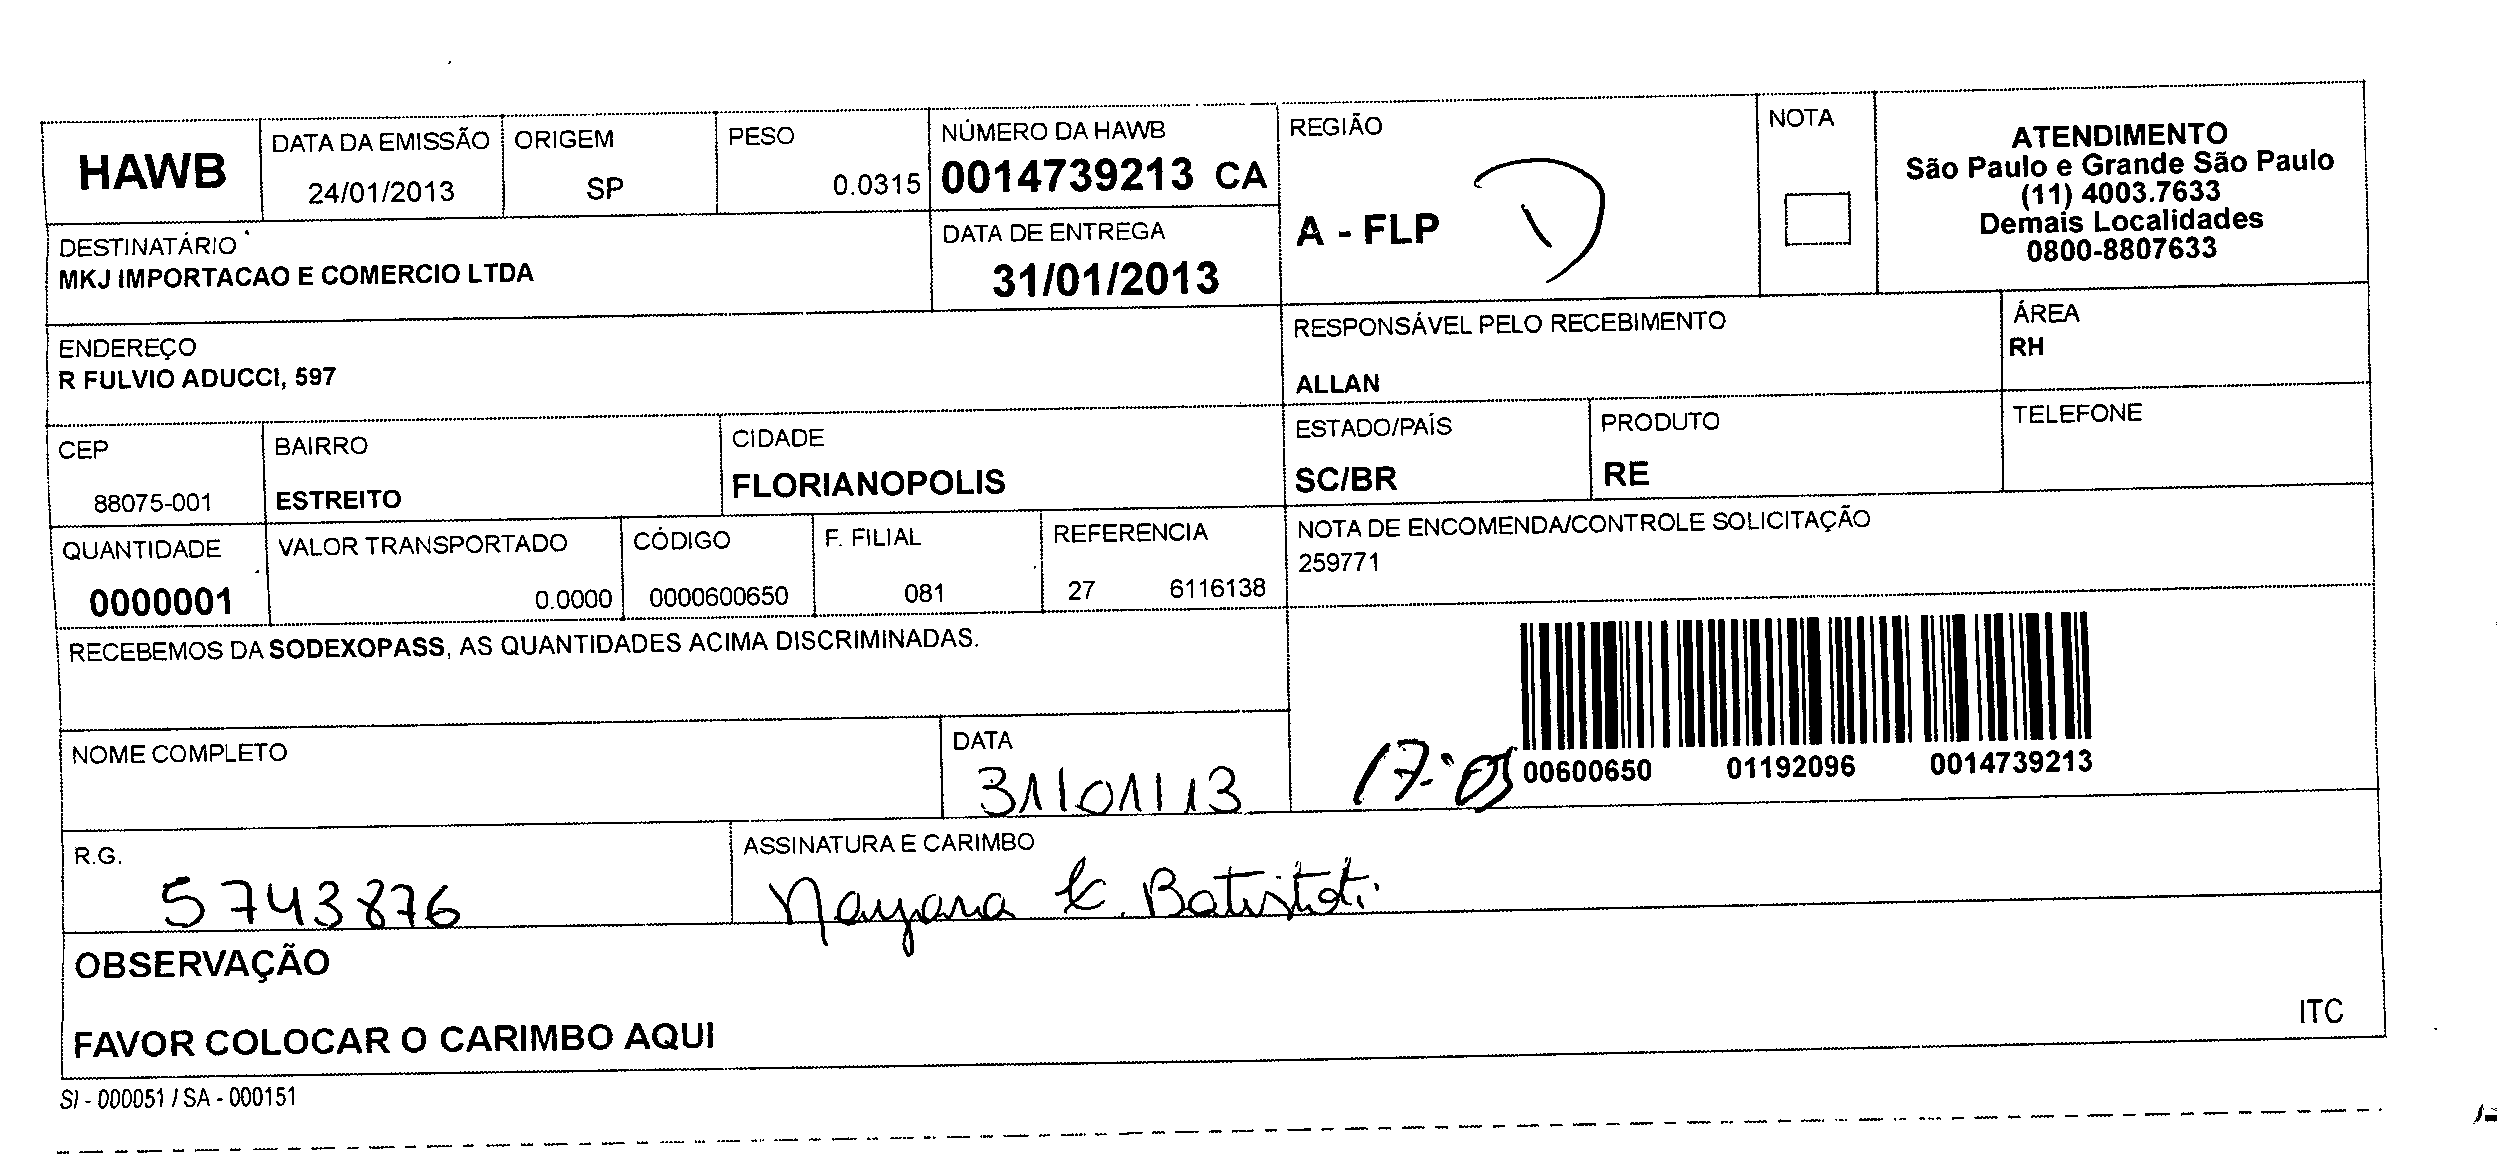 HAWB
DATA DA EMISSÃO
24/01/2013
ORIGEM
SP
PESO
0.0315
NÚMERO DA HAWB
0014739213 CA
REGIÃO
A - FLP
NOTA
ATENDIMENTO
São Paulo e Grande São Paulo
(11) 4003.7633
Demais Localidades
0800-8807633
DESTINATÁRIO
MKJ IMPORTACAO E COMERCIO LTDA
DATA DE ENTREGA
31/01/2013
ENDEREÇO
R FULVIO ADUCCI, 597
RESPONSÁVEL PELO RECEBIMENTO
ALLAN
ÁREA
RH
CEP
88075-001
BAIRRO
ESTREITO
CIDADE
FLORIANOPOLIS
ESTADO/PAÍS
SC/BR
PRODUTO
RE
TELEFONE
QUANTIDADE
0000001
VALOR TRANSPORTADO
0.0000
CÓDIGO
0000600650
F. FILIAL
081
REFERENCIA
27 6116138
NOTA DE ENCOMENDA/CONTROLE SOLICITAÇÃO
259771
RECEBEMOS DA SODEXOPASS, AS QUANTIDADES ACIMA DISCRIMINADAS.
00600650 01192096 0014739213
NOME COMPLETO
DATA
31/01/13
17:05
R.G.
5743876
ASSINATURA E CARIMBO
Nayana K. Batistoti
OBSERVAÇÃO
FAVOR COLOCAR O CARIMBO AQUI
ITC
SI - 000051 / SA - 000151